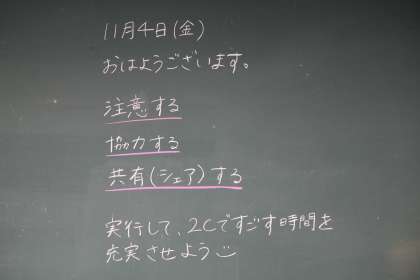 11月4日(金)
おはようございます。
注意する
協力する
共有(シェア)する
実行して、2Cですごす時間を
充実させよう